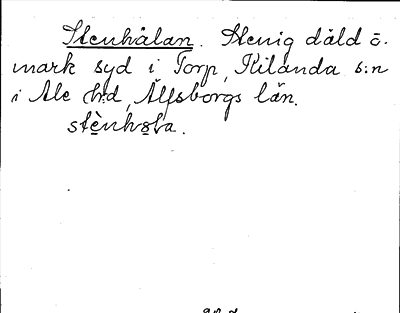 Stenhålan. Stenig dåld ö.
mark syd i Torp, Kilanda s:n
i Ale hd, Älfsborgs län.
stènhɷla.